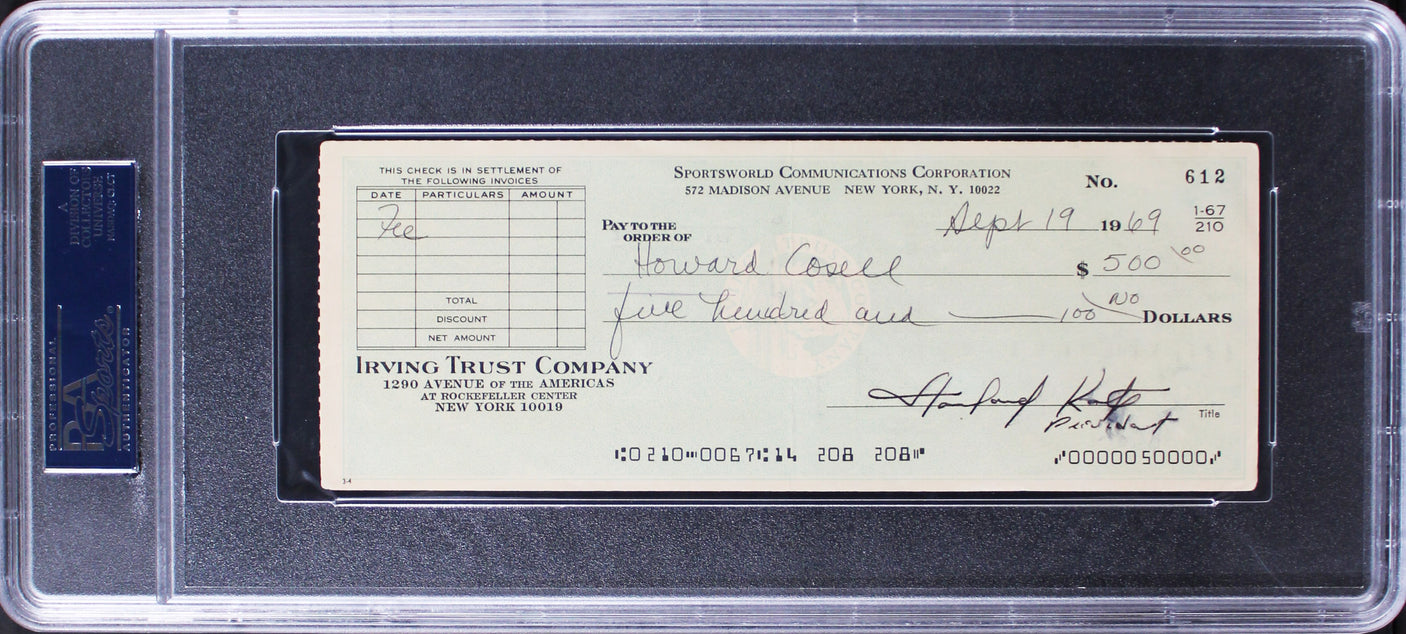 THIS CHECK IS IN SETTLEMENT OF
THE FOLLOWING INVOICES
DATE PARTICULARS AMOUNT
Fee
TOTAL
DISCOUNT
NET AMOUNT
IRVING TRUST COMPANY
1290 AVENUE OF THE AMERICAS
AT ROCKEFELLER CENTER
NEW YORK 10019
SPORTSWORLD COMMUNICATIONS CORPORATION
572 MADISON AVENUE NEW YORK, N. Y. 10022
No. 612
Sept 19 1969
1-67
210
PAY TO THE
ORDER OF
Howard Cosell $ 500 00
five hundred and No/100 DOLLARS
President
Title
⑆0210⑉0067⑆14 208 208⑈
⑇0000050000⑇
3-4
A
DIVISION OF
COLLECTORS
UNIVERSE
NASDAQ: CLCT
PROFESSIONAL
PSA
Sports
AUTHENTICATOR